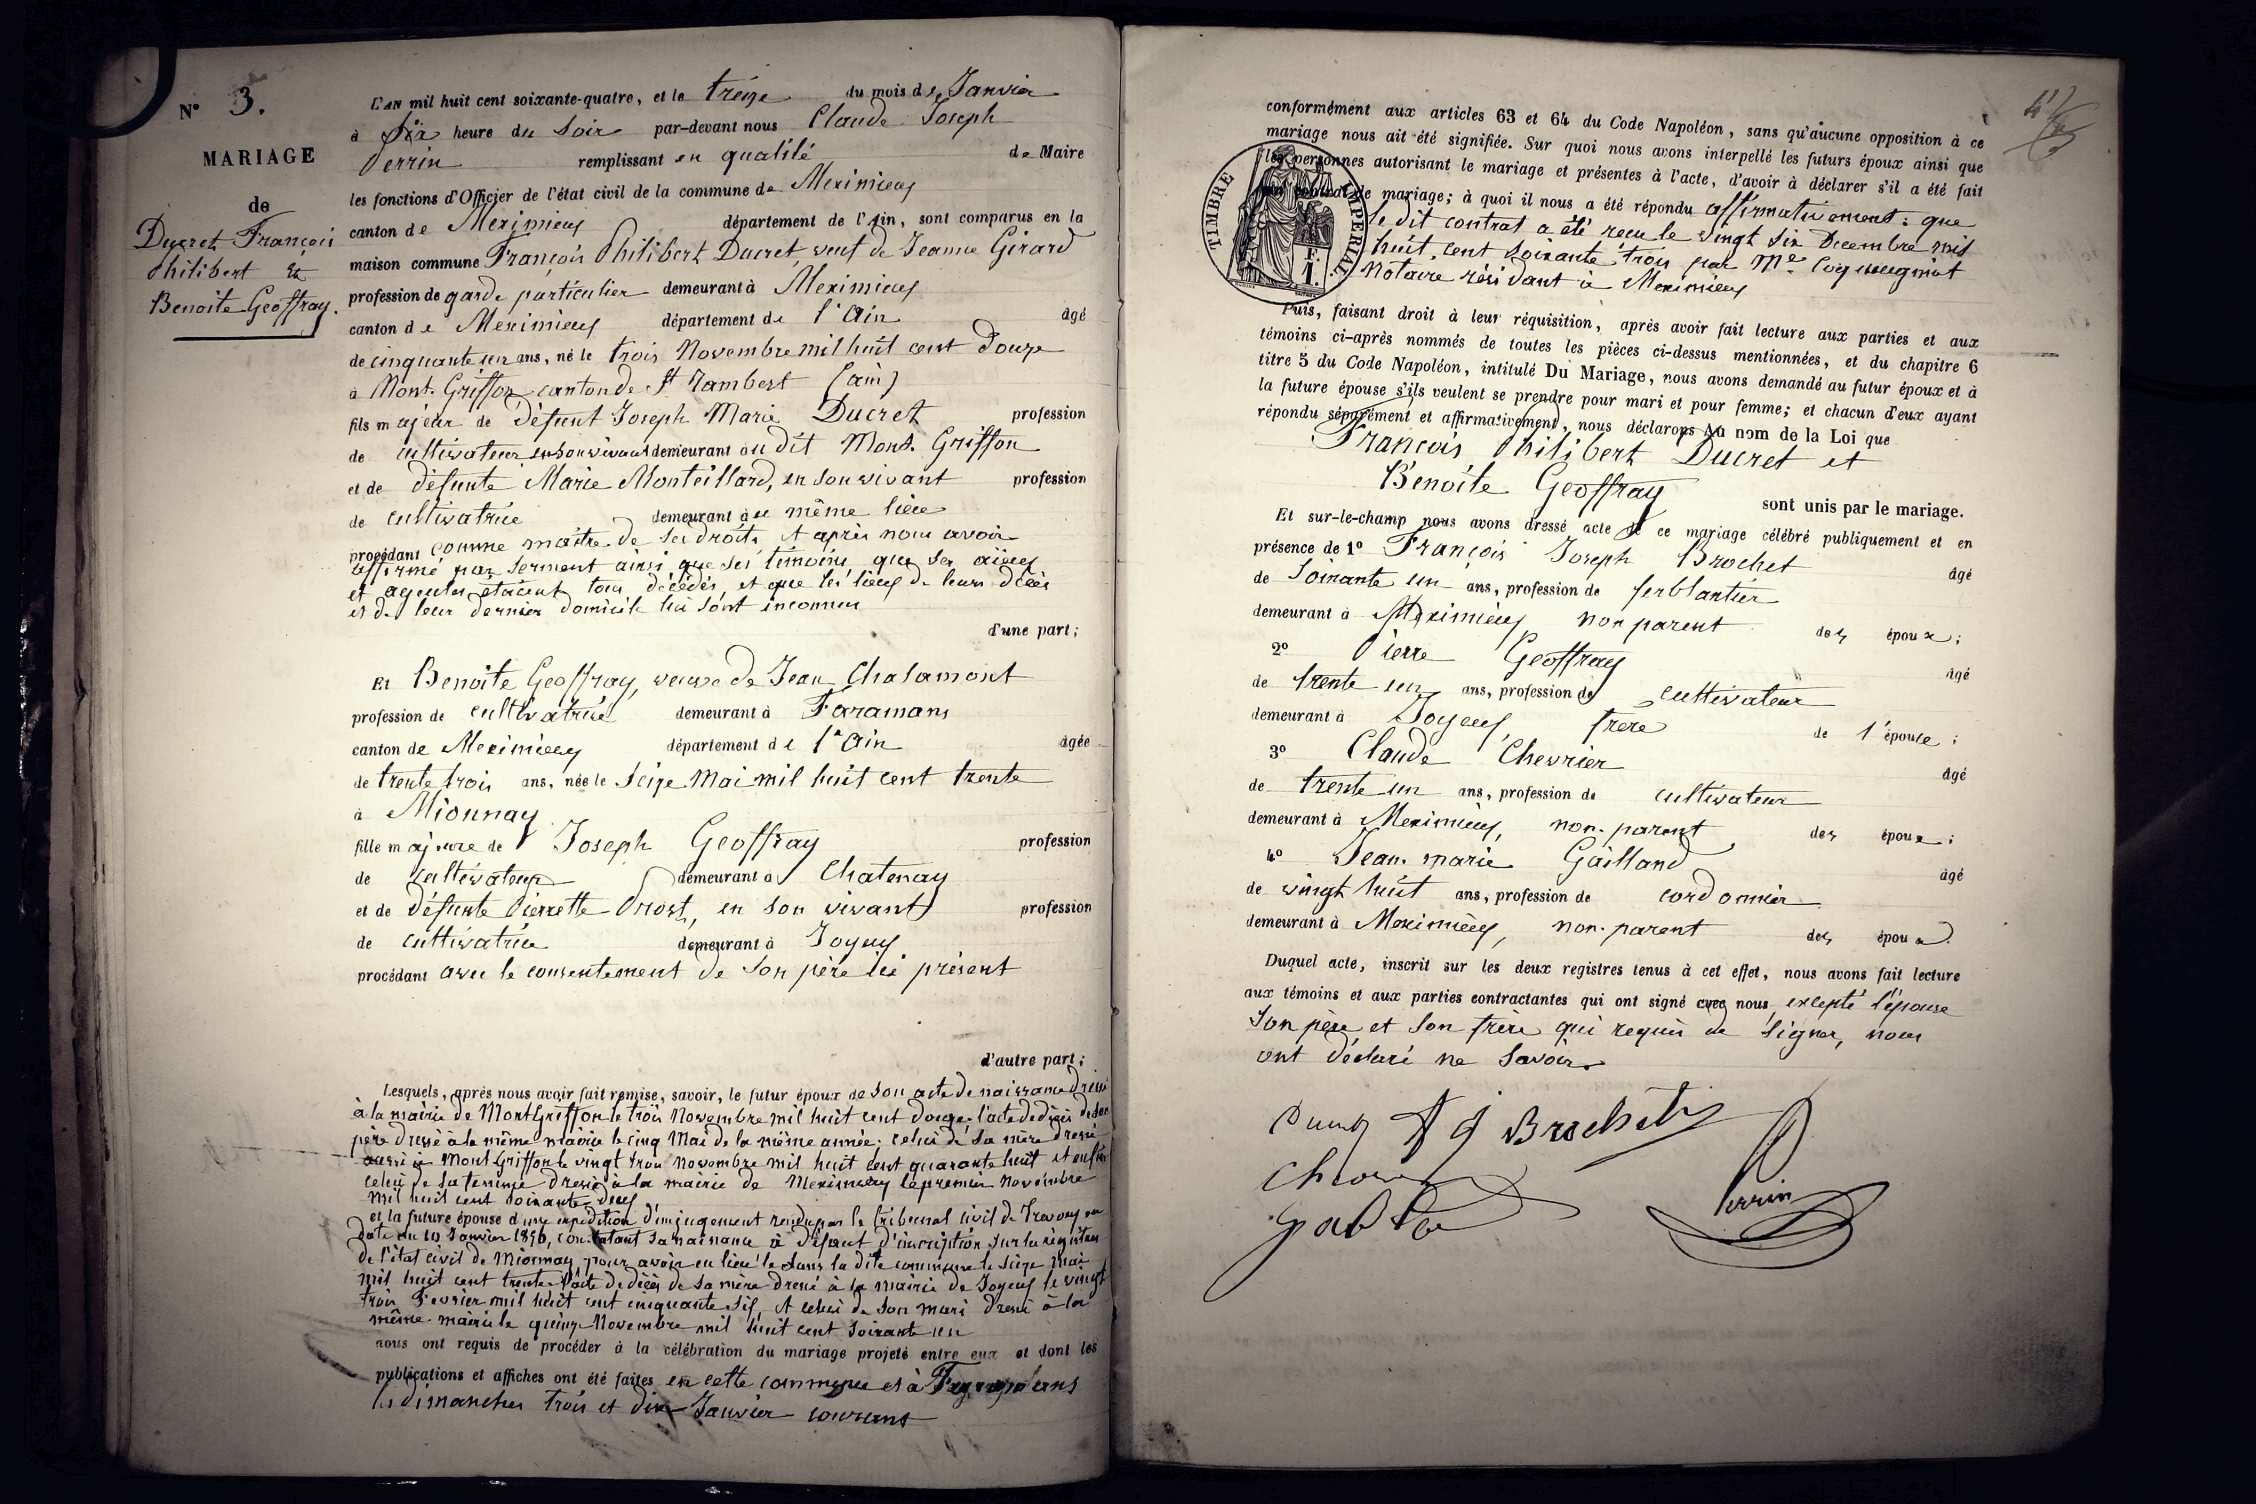 N° 3.
MARIAGE
de
Ducret François
Philibert &
Benoite Geoffray.
L'AN mil huit cent soixante-quatre, et le treize du mois de Janvier
à Six heure du Soir par-devant nous Claude Joseph
Perrin remplissant en qualité de Maire
les fonctions d'Officier de l'état civil de la commune de Meximieux
canton de Meximieux département de l'Ain, sont comparus en la
maison commune François Philibert Ducret, veuf de Jeanne Girard
profession de garde particulier demeurant à Meximieux
canton de Meximieux département de l'Ain âgé
de cinquante un ans, né le trois Novembre mil huit cent douze
à Mont-Griffon, canton de St Rambert (ain)
fils majeur de défunt Joseph Marie Ducret profession
de cultivateur en son vivant demeurant au dit Mont-Griffon
et de défunte Marie Monteillard, en son vivant profession
de cultivatrice demeurant au même lieu
procédant comme maître de ses droits et après nous avoir
affirmé par serment ainsi que ses témoins, que ses aïeux
et aïeules étaient tous décédés, et que les lieux de leurs décès
et de leur dernier domicile lui sont inconnus
d'une part;
Et Benoite Geoffray, veuve de Jean Chalamont
profession de cultivatrice demeurant à Faramans
canton de Meximieux département de l'Ain âgée
de trente trois ans, née le Seize Mai mil huit cent trente
à Mionnay
fille majeure de Joseph Geoffray profession
de cultivateur demeurant à Chatenay
et de défunte Pierrette Prost, en son vivant profession
de cultivatrice demeurant à Joyeux
procédant avec le consentement de son père ici présent
d'autre part;
Lesquels, après nous avoir fait remise, savoir, le futur époux de son acte de naissance dressé
à la mairie de MontGriffon le trois Novembre mil huit cent douze; l'acte de décès de son
père dressé à la même mairie le cinq Mai de la même année; celui de sa mère dressé
aussi à MontGriffon le vingt trois Novembre mil huit cent quarante huit et enfin
celui de sa femme dressé à la mairie de Meximieux le premier Novembre
mil huit cent soixante deux
et la future épouse d'une expédition d'un jugement rendu par le tribunal civil de Trevoux en
date du 10 Janvier 1850, constatant sa naissance à défaut d'inscription sur les registres
de l'état civil de Mionnay, pour avoir eu lieu dans la dite commune le Seize Mai
mil huit cent trente l'acte de décès de sa mère dressé à la mairie de Joyeux le vingt
trois Février mil huit cent cinquante six, et celui de son mari dressé à la
même mairie le quinze Novembre mil huit cent soixante un
nous ont requis de procéder à la célébration du mariage projeté entre eux et dont les
publications et affiches ont été faites en cette commune et à Faramans
les dimanches trois et dix Janvier courant
conformément aux articles 63 et 64 du Code Napoléon, sans qu'aucune opposition à ce
mariage nous ait été signifiée. Sur quoi nous avons interpellé les futurs époux ainsi que
les personnes autorisant le mariage et présentes à l'acte, d'avoir à déclarer s'il a été fait
un contrat de mariage; à quoi il nous a été répondu affirmativement: que
le dit contrat a été reçu le vingt six Decembre mil
huit cent soixante trois par Me
Notaire résidant à Meximieux
TIMBRE IMPERIAL.
F.
1.
Puis, faisant droit à leur réquisition, après avoir fait lecture aux parties et aux
témoins ci-après nommés de toutes les pièces ci-dessus mentionnées, et du chapitre 6
titre 5 du Code Napoléon, intitulé Du Mariage, nous avons demandé au futur époux et à
la future épouse s'ils veulent se prendre pour mari et pour femme; et chacun d'eux ayant
répondu séparément et affirmativement, nous déclarons Au nom de la Loi que
François Philibert Ducret et
Benoite Geoffray
sont unis par le mariage.
Et sur-le-champ nous avons dressé acte de ce mariage célébré publiquement et en
présence de 1° François Joseph Brochet âgé
de Soixante un ans, profession de ferblantier
demeurant à Meximieux non parent des époux;
2° Pierre Geoffray âgé
de trente un ans, profession de cultivateur
demeurant à Joyeux, frere de l'épouse;
3° Claude Chevrier âgé
de trente un ans, profession de cultivateur
demeurant à Meximieux, non-parent des époux;
4° Jean-marie Gailland âgé
de vingt huit ans, profession de cordonnier
demeurant à Meximieux, non-parent des époux.
Duquel acte, inscrit sur les deux registres tenus à cet effet, nous avons fait lecture
aux témoins et aux parties contractantes qui ont signé avec nous, excepté l'épouse
son père et son frère qui requis de signer, nous
ont déclaré ne savoir.
Ducret f j Brochet
Perrin